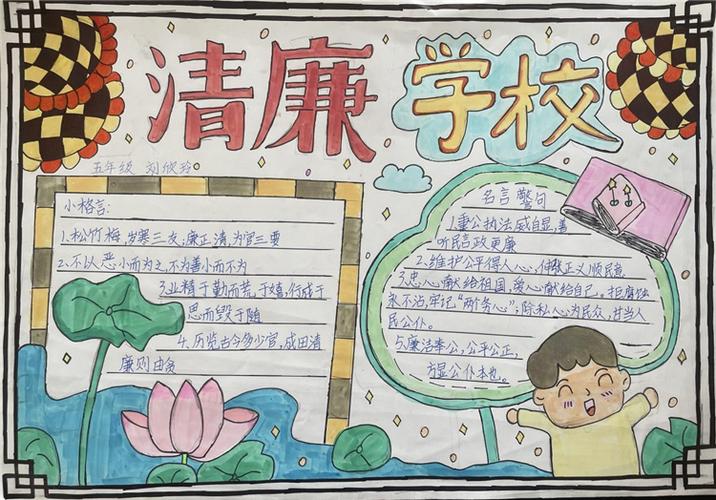 清廉学校
五年级 刘欣玲
小格言:
1、松竹梅,岁寒三友;廉正清,为官三要
2、不以恶小而为之,不为善小而不为
3、业精于勤而荒于嬉,行成于
思而毁于随
4、历览古今多少官,成由清
廉则由贪
名言警句
1、重公执法威自显,善
听民言政更廉
2、维护公平得人心,伸张正义顺民意
3、忠心献给祖国,爱心献给自己。拒腐蚀
永不沾,牢记“两个务心”;除私人心为民众,甘当人
民公仆。
5、廉洁奉公,公平公正,
方显公仆本色。